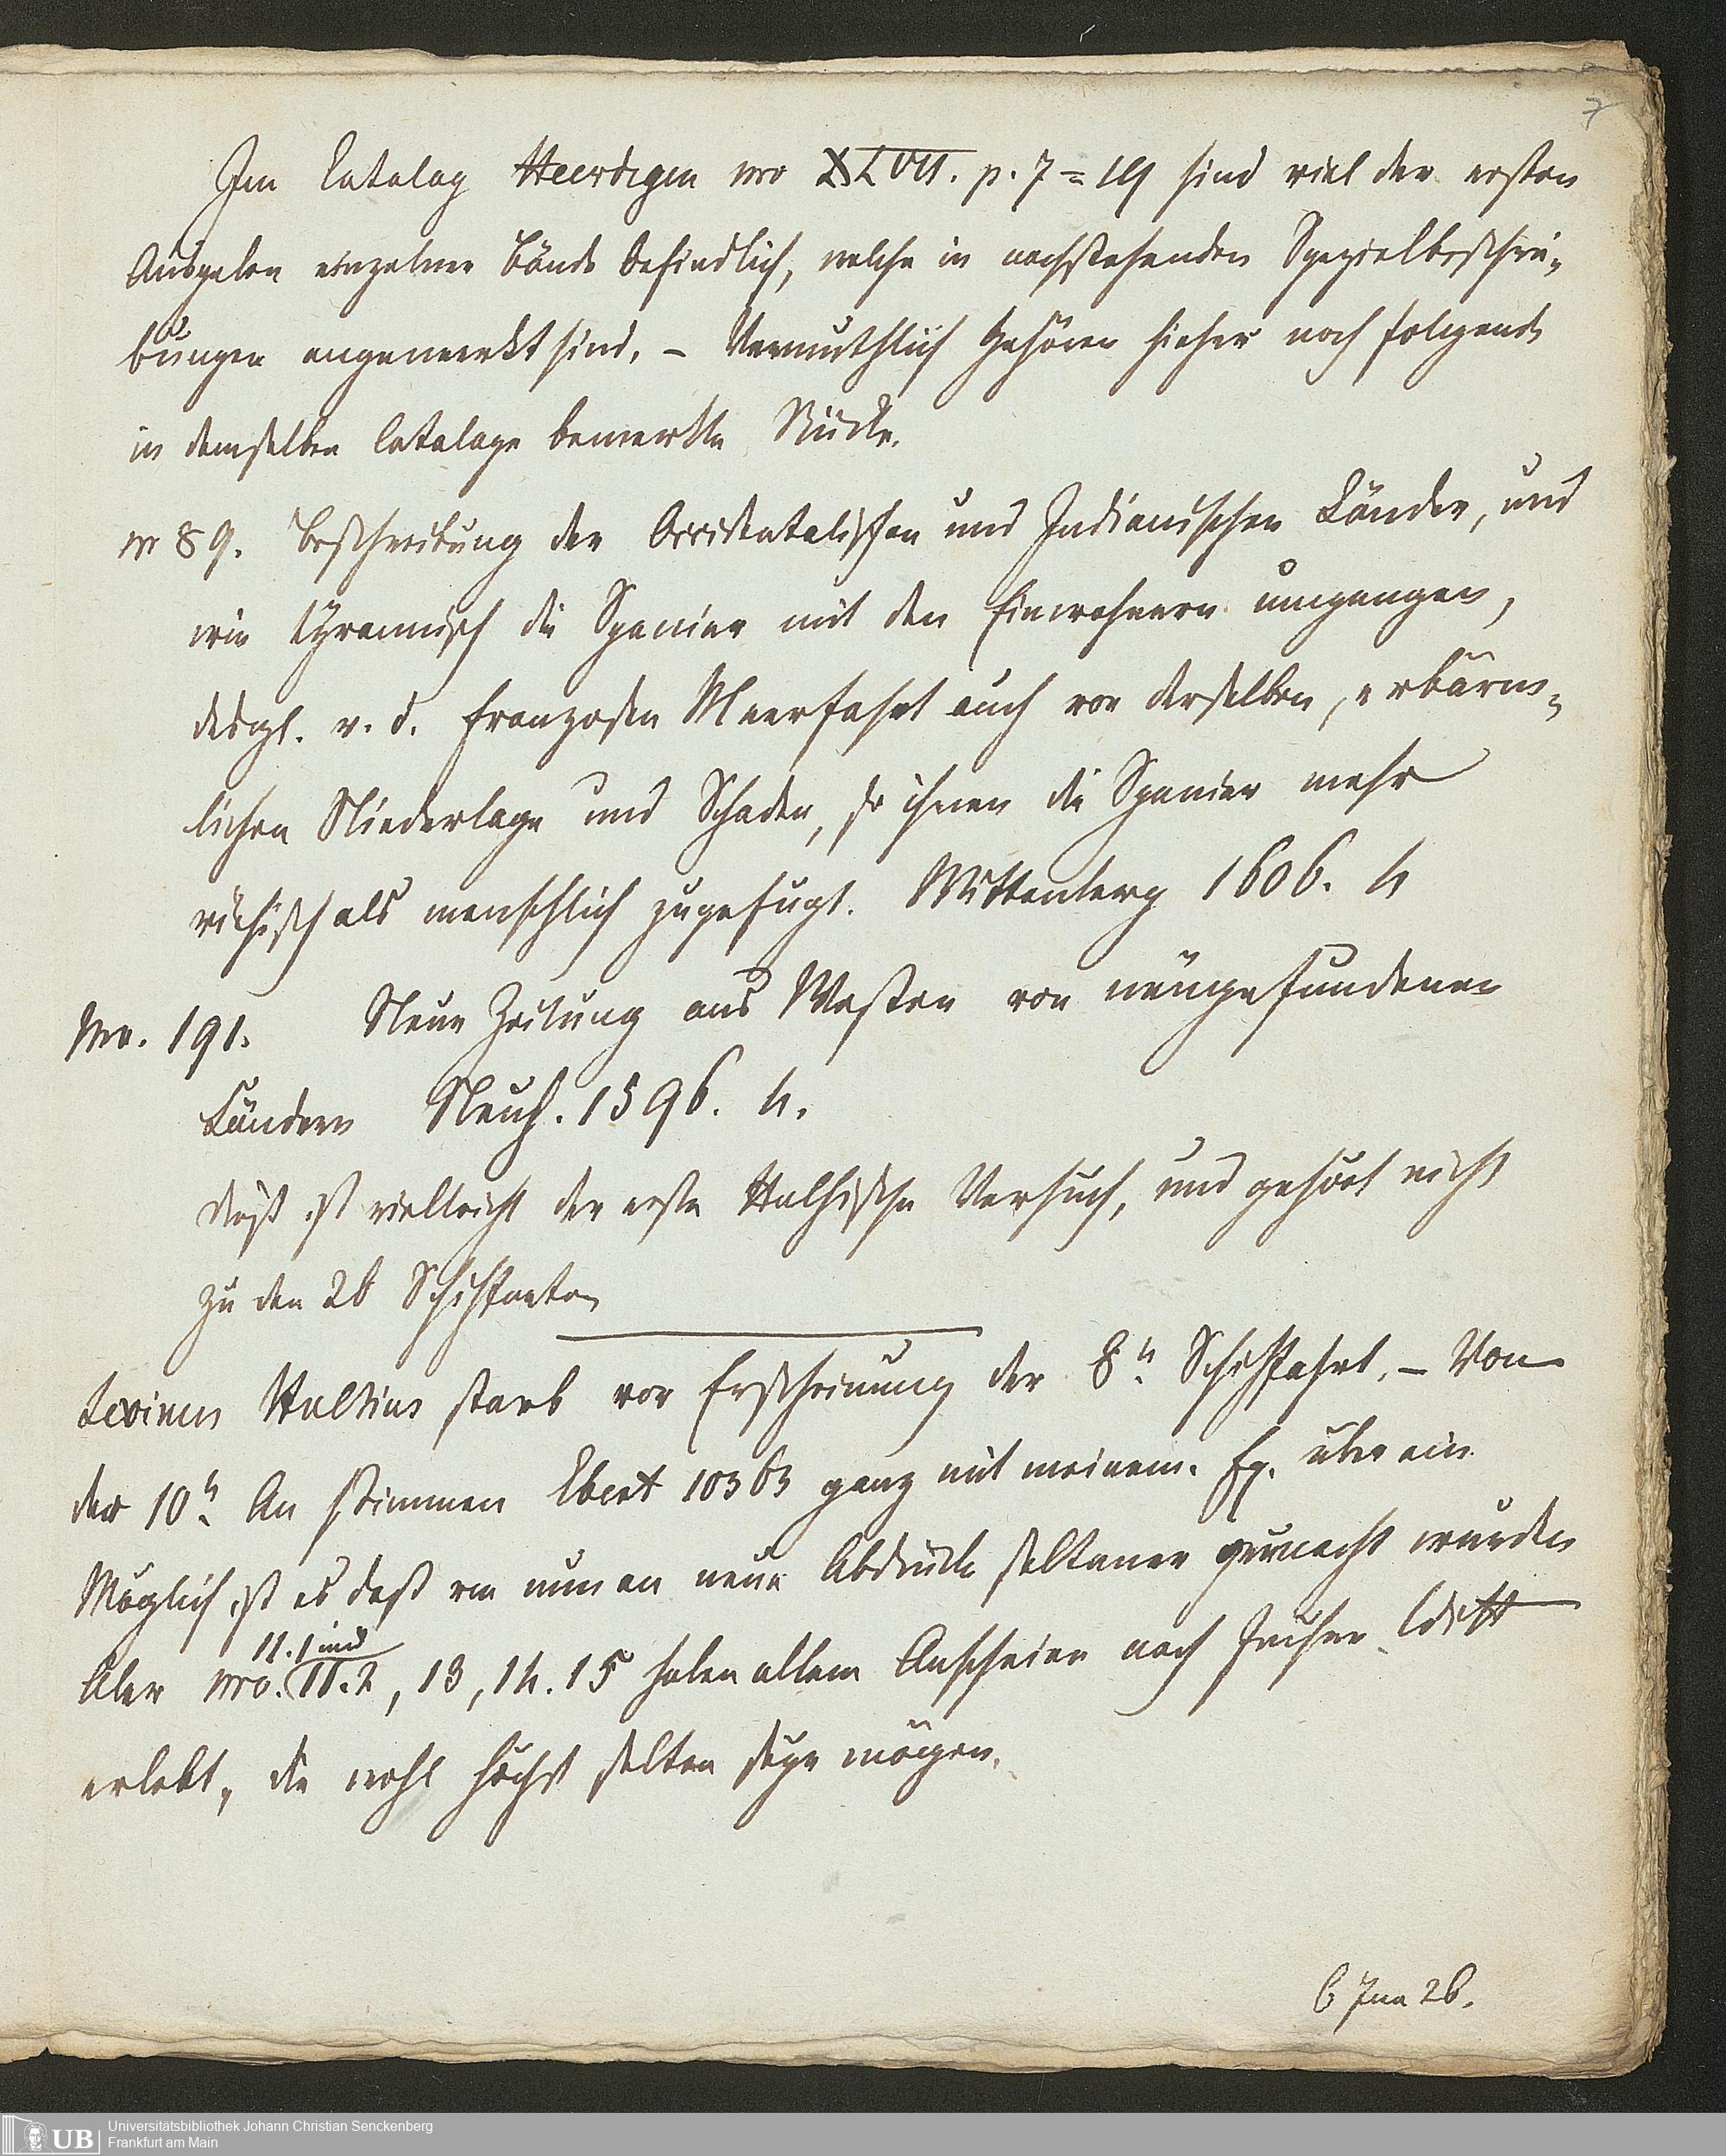 7
Im Catalog Heerdegen nro XLVII. p. 7=19 sind viel der ersten
Ausgaben einzelner Bände befindlich, welche in nachstehenden Spezialbeschrei-
bungen angemerkt sind. – Vermuthlich gehören hieher noch folgende
in demselben Cataloge bemerkte Stücke.
nr 89. Beschreibung der Occidentalischen und Indianischen Länder, und
wie tyrannisch die Spanier mit den Einwohnern umgangen,
desgl. v. d. Franzosen Meerfahrt auch von derselben, erbärm-
lichen Niederlage und Schaden, so ihnen die Spanier mehr
viehisch als menschlich zugefugt. Wittenberg 1606. 4
Nro. 191. Neue Zeitung aus Westen von neugefundenen
Ländern 1596. 4.
dieß ist vielleicht der erste Hulsische Versuch, und gehört nicht
zu den 26 Schiffarten
Levinus Hulsius starb vor Erscheinung der 8n Schiffahrt. – Von
der 10n An stimmen Ebert 10363 ganz mit meinem Ex. überein
Möglich ist es daß von nun an neue Abdrücke seltener gemacht wurden
11.1 und
Aber Nro. 11.2, 13, 14. 15 haben allem Anscheine nach frühere
erlebt, die wohl höchst selten seyn mögen.
6 Jun 26.
UB
Universitätsbibliothek Johann Christian Senckenberg
Frankfurt am Main